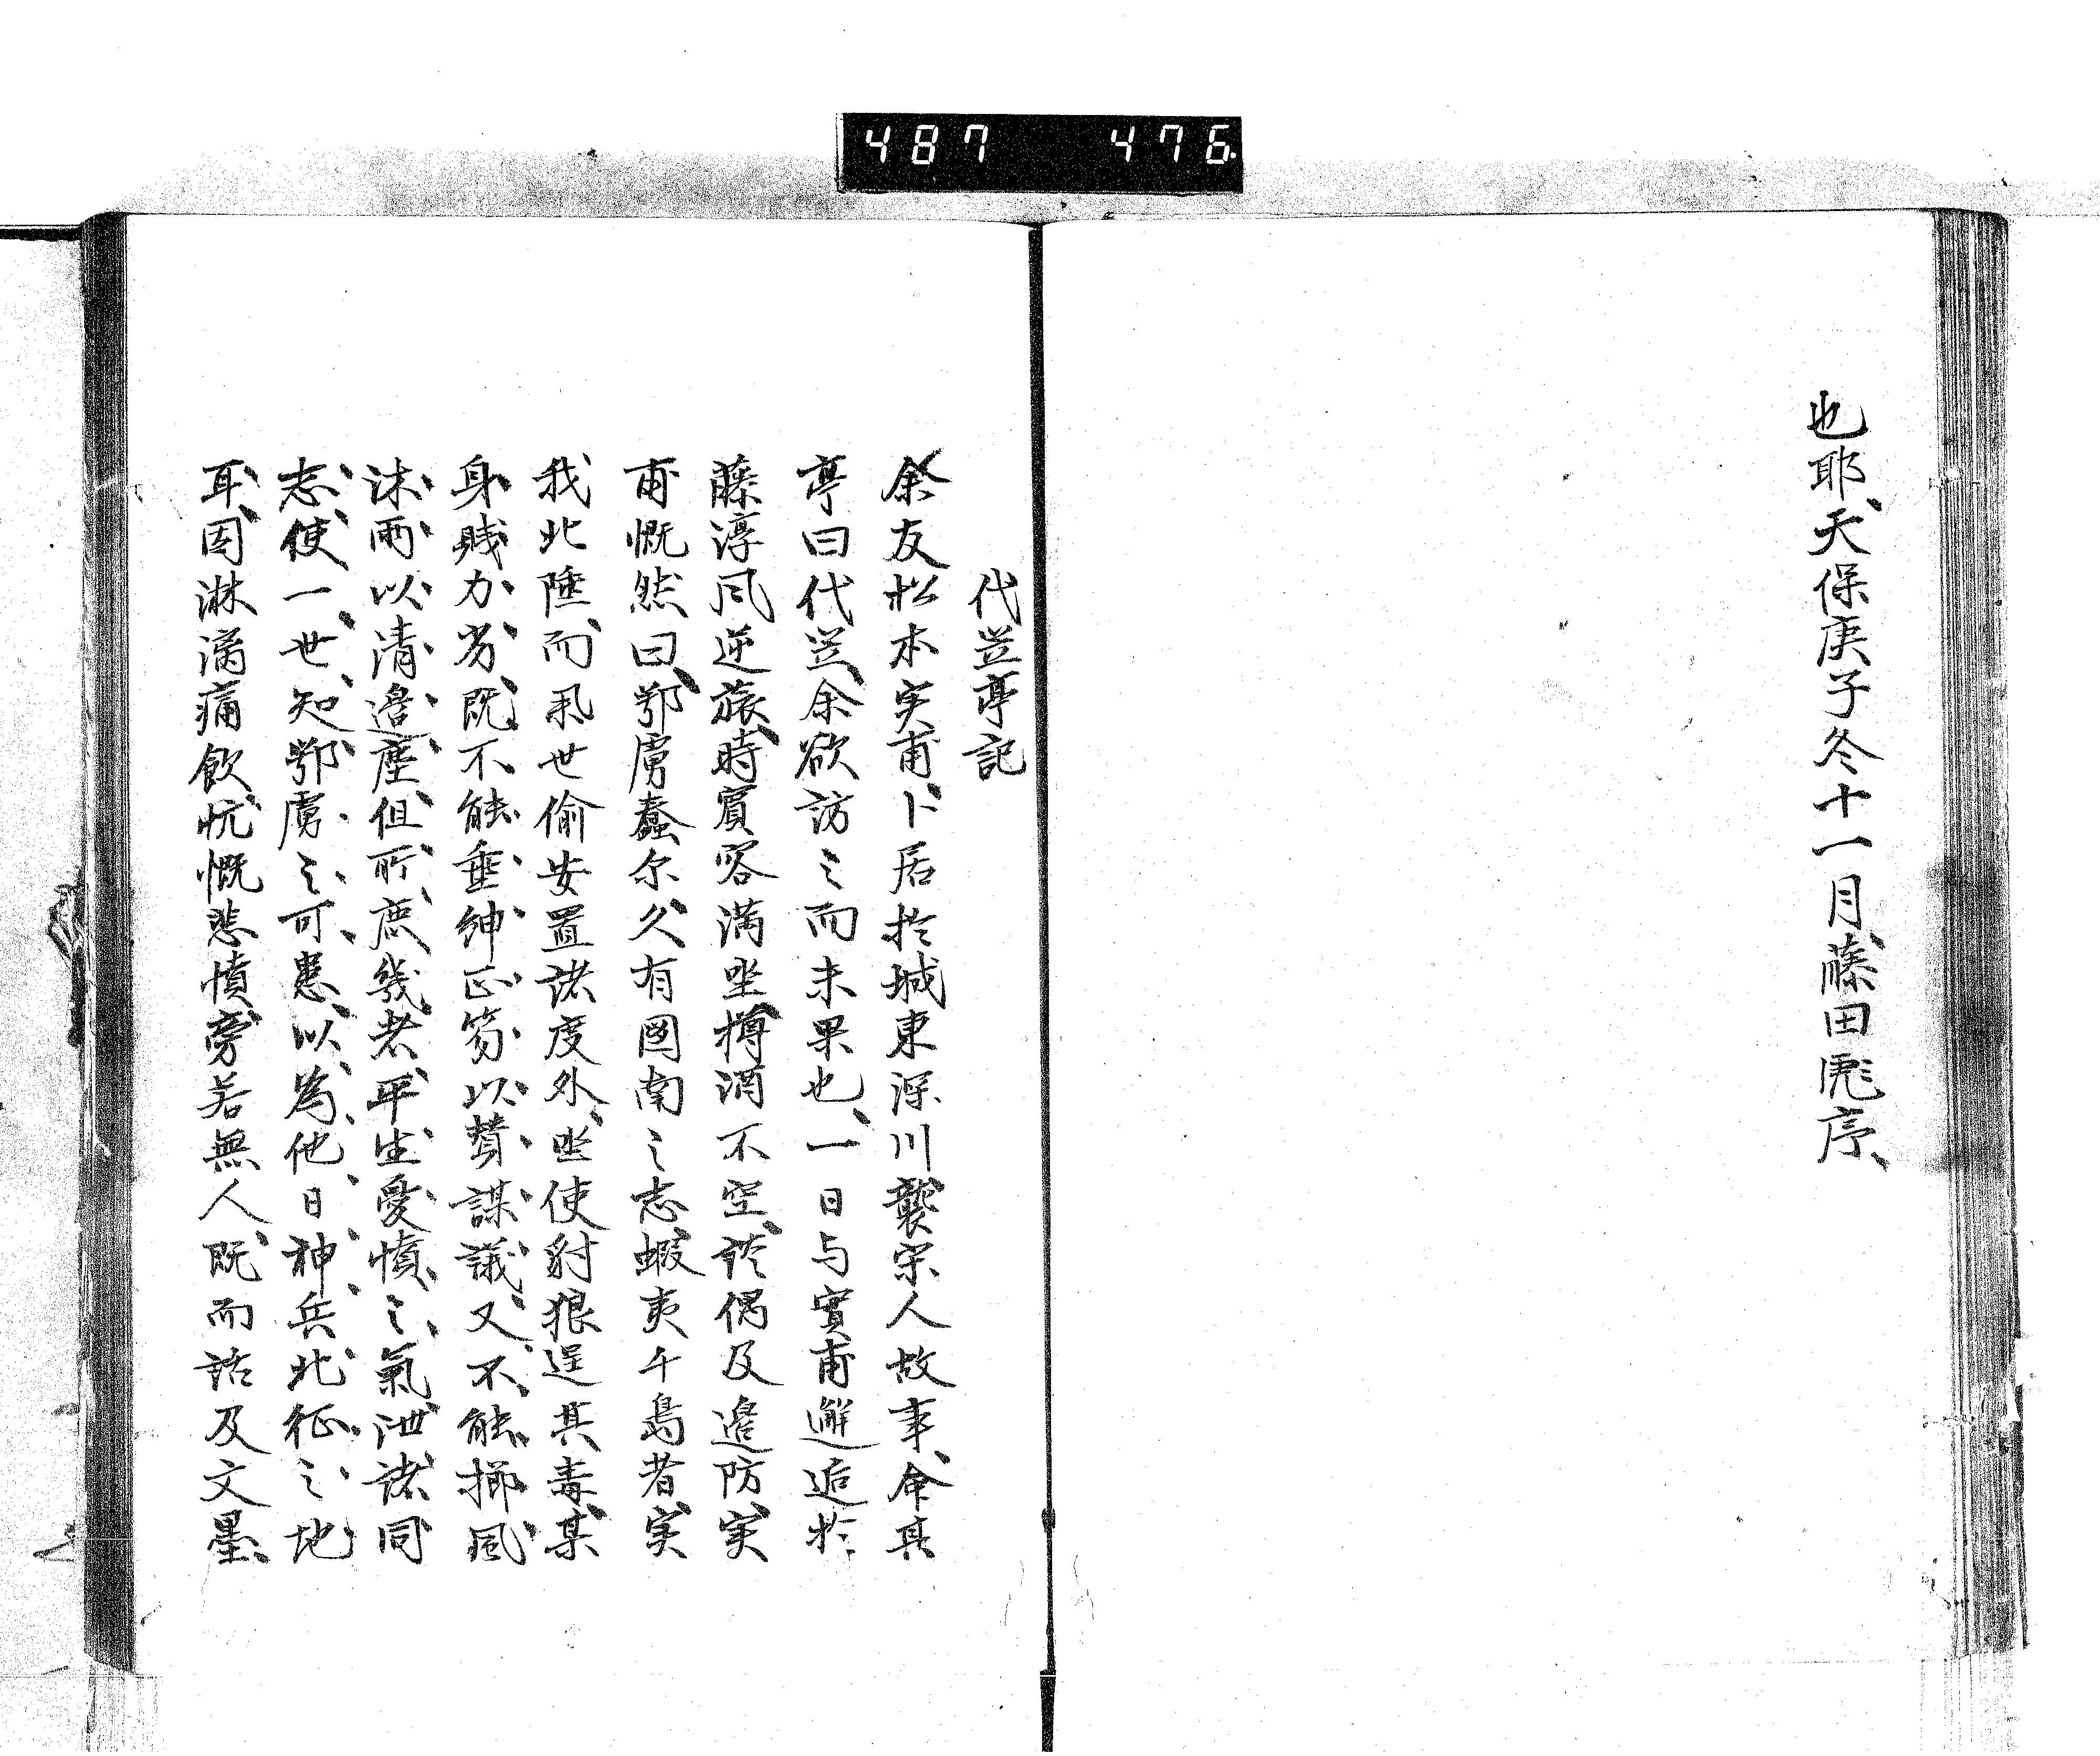 487 476
也耶、天保庚子冬十一月、藤田彪序、
代笠亭記
余友松本実甫、卜居於城東深川、襲宋人故事、命其
亭曰代笠、余欲訪之而未果也、一日与實甫邂逅於
藤淳風逆旅、時賓客満坐、樽酒不空、談偶及邉防、実
甫慨然曰、鄂虜蠢尓、久有圖南之志、蝦夷千島者、実
我北陲、而承世偷安、置諸度外、坐使豺狼逞其毒、某
身賤力劣、既不能垂紳正笏、以賛謀議、又不能櫛風
沐雨、以清邉塵、但所庶幾者、平生憂憤之氣、泄諸同
志、使一世知鄂虜之可患、以為他日神兵北征之地
耳、因淋漓痛飲、忼慨悲憤、旁若無人、既而話及文墨、